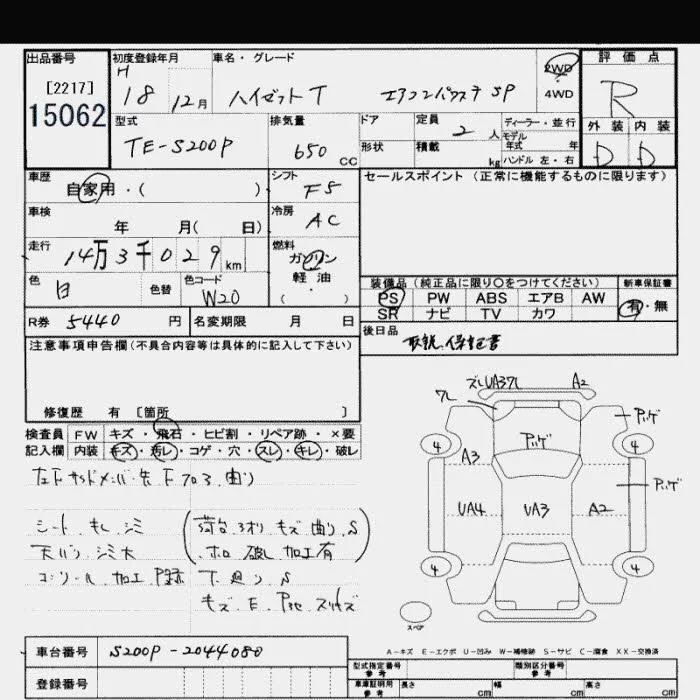 出品番号
[2217]
15062
初度登録年月
H
18 12月
車名・グレード
ハイゼットT エアコンパワステSP
2WD
4WD
評価点
R
外装 内装
D D
型式
TE-S200P
排気量
650 CC
ドア
形状
定員
2 人
積載
kg
ディーラー・並行
モデル
年式 年
ハンドル 左・右
車歴
自家用・( )
シフト
F5
セールスポイント(正常に機能するものに限ります)
車検
年 月( 日)
冷房
AC
走行
14万3千029km
燃料
ガソリン
軽油
( )
色
白
色替
色コード
W20
装備品(純正品に限り○をつけてください)
PS PW ABS エアB AW
SR ナビ TV カワ
新車保証書
有・無
R券 5440 円
名変期限 月 日
後日品
取説、保証書
注意事項申告欄(不具合内容等は具体的に記入して下さい)
修復歴 有 [箇所 ]
検査員 FW キズ・飛石・ヒビ割・リペア跡・×要
記入欄 内装 キズ・汚レ・コゲ・穴・スレ・キレ・破レ
シート、キレ、シミ
天バリ、シミ大
荷台、サオリ キズ 曲り、S
ホロ 破レ 加工有
下廻り、S
ズレUA37L A2
7L
バリゲ
バリゲ
バリゲ
A3
UA4
UA3
A2
4
4
4
4
スペア
A-キズ E-エクボ U-凹み W-補修跡 S-サビ C-腐食 XX-交換済
車台番号 S200P-2044080
登録番号
型式指定番号
参考
類別区分番号
参考
車庫証明用
参考
長さ cm
幅 cm
高さ cm